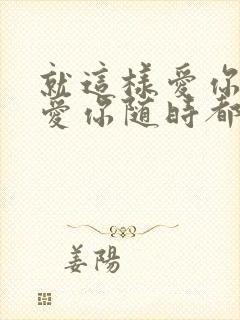 就這樣愛你
愛你隨時都
姜陽